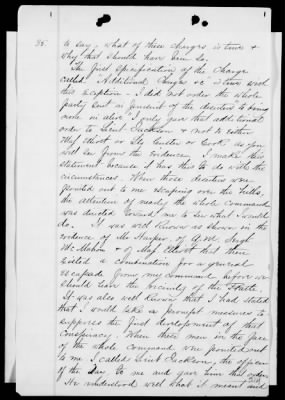 to say, what of these charges is true &
why that should have been so.
The first specification of the Charge
called "Additional Charges &c" is true with
this exception. I did not order the whole
party sent in pursuit of the deserters to bring
none in alive. I only gave that additional
order to Lieut Jackson & not to either
Maj Elliott or Lts Custer or Cook as you
will see from the evidence. I make this
statement because it has this to do with the
circumstances. When those deserters were
pointed out to me escaping over the hills,
the attention of nearly the whole command
was directed toward me to see what I would
do. It was well known as shown in the
evidence of Mr Harper, of Sergt
McMahon & of Maj Elliott that there
existed a combination for a general
escapade from my command before we
should leave the vicinity of the Platte.
It was also well known that I had stated
that I would take a prompt measures to
suppress the first development of that
conspiracy. When these men in the face
of the whole command were pointed out
to me I called Lieut Jackson, the officer
of the Day to me and gave him this order.
He understood well what it meant and